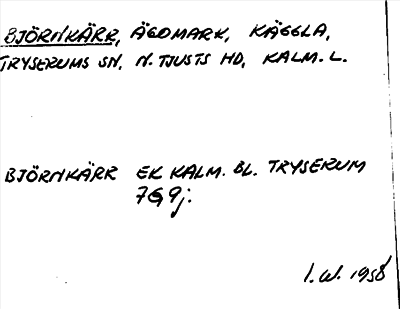 BJÖRNKÄRR, ÄGOMARK, KÄGGLA,
TRYSERUMS SN, N. TJUSTS HD, KALM. L.
BJÖRNKÄRR EK KALM. BL. TRYSERUM
7G9j.
I. W. 1958